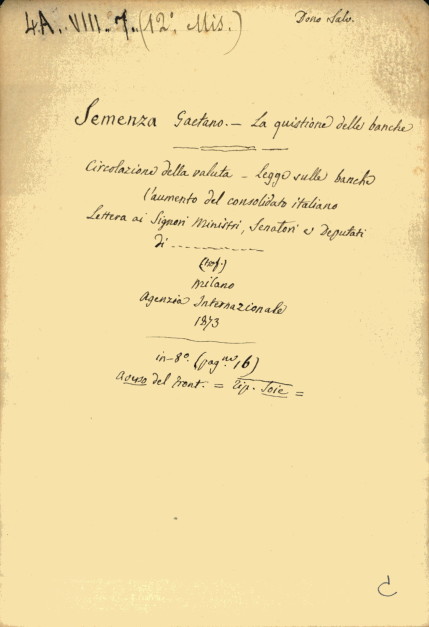 4A. VIII. 7. (12° Mis.)
Dono Salv.
Semenza Gaetano. — La quistione delle banche
Circolazione della valuta — Legge sulle banche
l'aumento del consolidato italiano
Lettera ai Signori Ministri, Senatori e Deputati
di
Milano
Agenzia Internazionale
1873
in-8° (pag.ne 16)
del Front. = Tip. =
C